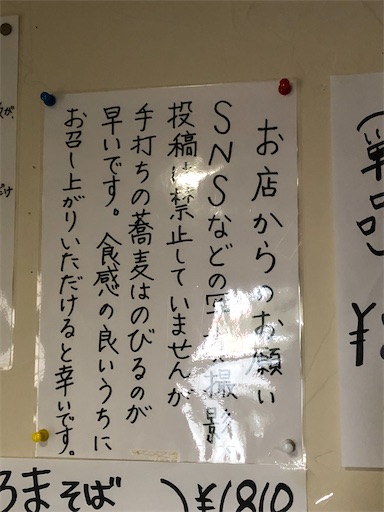 お店からのお願い
SNSなどの写真撮影、
投稿は禁止していませんが
手打ちの蕎麦はのびるのが
早いです。食感の良いうちに
お召し上がりいただけると幸いです。
(単品)
¥
ろまそば
)¥1810